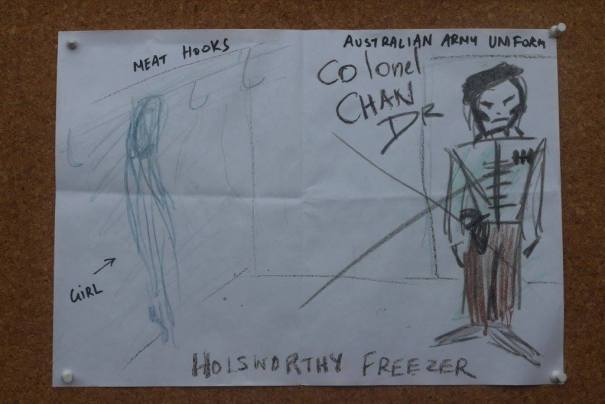 MEAT HOOKS
AUSTRALIAN ARMY UNIFORM
Colonel
CHAN
DR
GIRL
HOLSWORTHY FREEZER